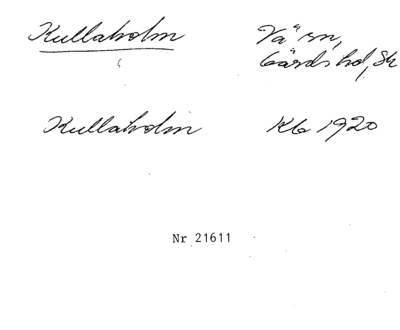 Kullaholm Vä sn,
Gärds hd, Sk
Kullaholm Kb 1920
Nr 21611